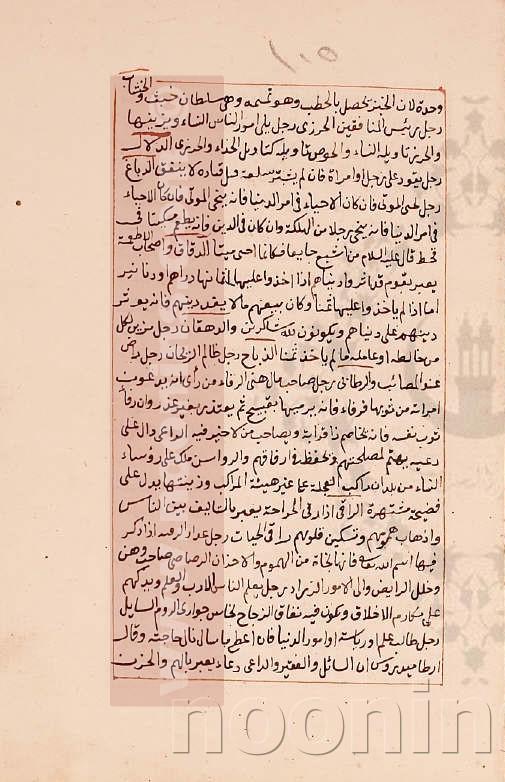 ١٠٥
الخشاب
وحدة لان الخبز يحصل بالحطب وهو قسمه وهى سلطان خبيث و
رجل رئيس المنافقين الحرزى رجل يلى امور الناس النساء ويزينها
والحرز تاويله النساء والخوص تاويله كتاويل الحذاء والحريرى الدلال
رجل يقود على رجل او امراة فان لم يشتر سلعة فبل قياده لا ينفق الدباغ
رجل يلى الموتى فان كان الاحياء فى امر الدنيا فانه ينجى الموتى فان كان الاحياء
فى امر الدنيا فانه ينجى رجلا من الهلكة وان كان فى الدين فانه يطعم مسكينا فى
قحط قال عليه السلام من اشبع جايعا فكانما احيى ميتا الدقاق واصحاب الاطعمة
يعبر بقوم قد اثروا دنياهم اذا اخذوا عليها اثمانها دراهم او دنانير
اما اذا لم ياخذوا عليها ثمنا وكان بيعهم مالا يفسد دينهم فانه يوثر
دينهم على دنياهم ويكونون لله شاكرين والدهقان رجل مزين لكل
من خالطه او عامله ما لم ياخذ ثمنا الذباح رجل ظالم الريحان رجل راض
عند المصائب والرطانى رجل صاحب مال هنى الرفاء من راى انه يرفو ثوب
امراته من ثوبها فرفاه فانه يرميها بقبيح ثم يعتذر بغير عذر وان رفا
ثوب نفسه فانه يخاصم ذا قرابة ويصاحب من لا خير فيه الراعى وال على
رعيه يهتم لمصلحتهم ويحفظه فى ارفاقهم والرواسى ملك على رؤساء
النساء من بلدان راكب العجلة على غير هيئة المراكب وزينتها يدل على
فضيحة مشتهرة الراقى اذا رقى الجراحة يعبر بالتاليف بين الناس
واذهاب همومهم وتسكين قلوبهم راقى الحيات رجل غدار الرقيه اذا ذكر
فيها اسم الله تعالى فانها نجاة من الهموم والاحزان الرصاصى صاحب وهن
وخلل الرايض والى الامور الزراد رجل يعلم الناس الادب والعلم ويدلهم
على مكارم الاخلاق ويكون فيه نفاق الزجاج نخاس جوارى الروم السايل
رجل طالب علم او رياسة او امور الدنيا فان اعطى ما سال نال حاجته وقال
ارطاميدروس ان السائل والفقير والداعى دعاء يعبر بالهم والحزن
noonin